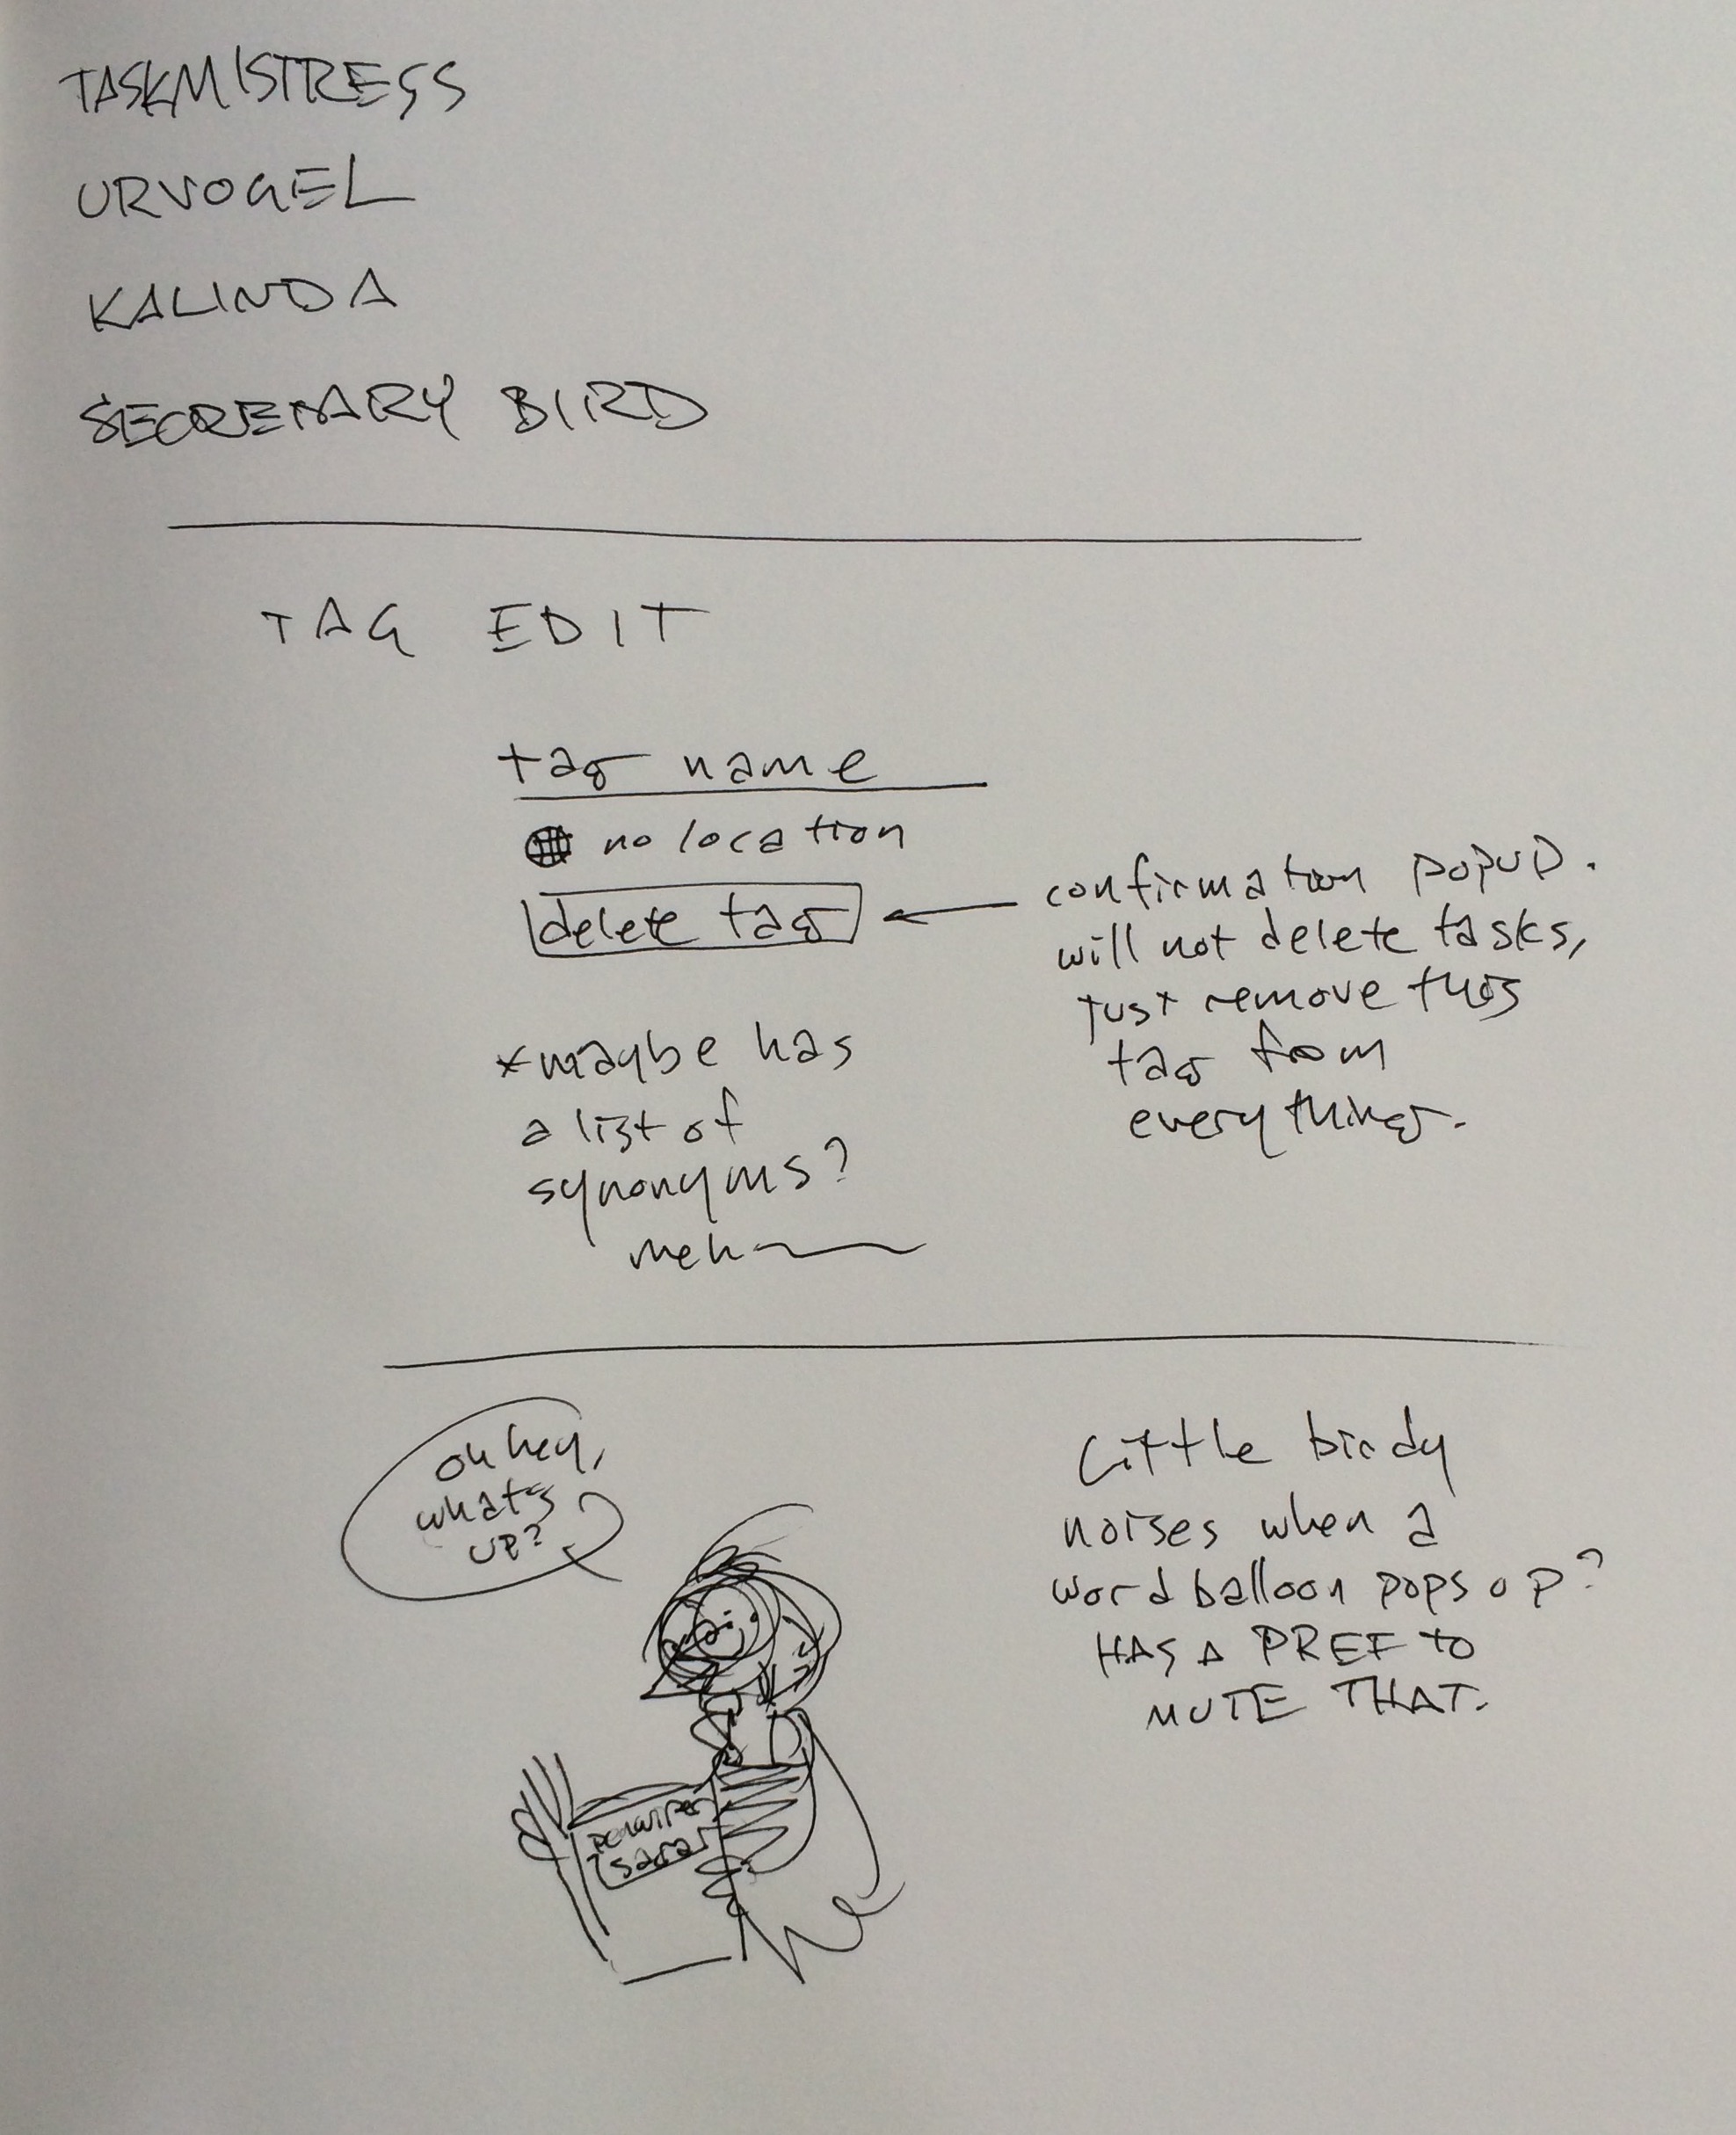 TASKMISTRESS
URVOGEL
KALINDA
SECRETARY BIRD
TAG EDIT
tag name
no location
delete tag
confirmation popup.
will not delete tasks,
just remove this
tag from
everything.
*maybe has
a list of
synonyms?
meh
oh hey,
what's
up?
Little birdy
noises when a
word balloon pops up?
HAS A PREF TO
MUTE THAT.